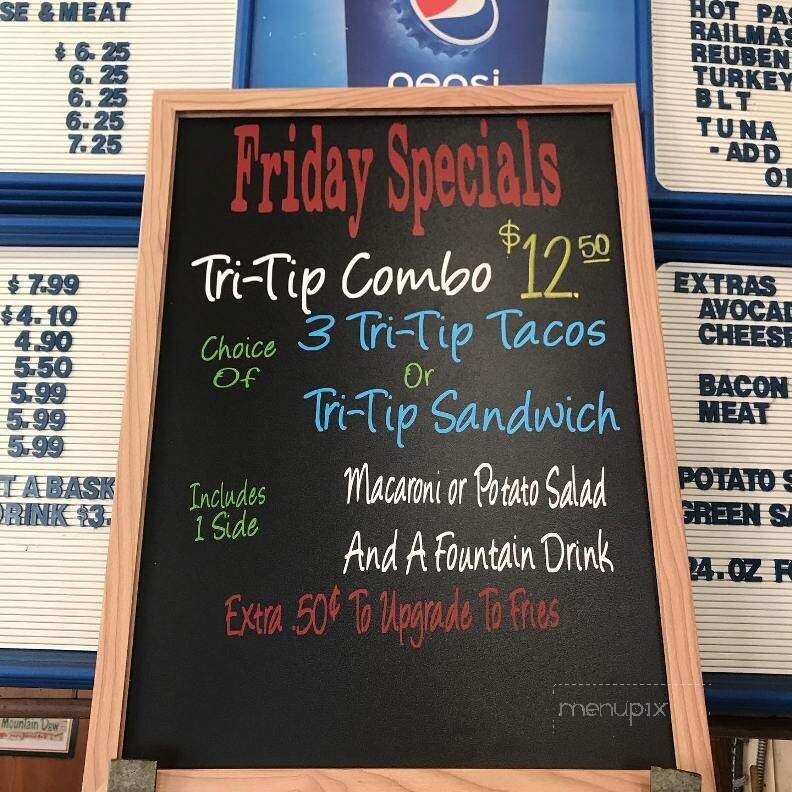 SE & MEAT
$ 6.25
6.25
6.25
6.25
7.25
$ 7.99
$4.10
4.90
5.50
5.99
5.99
5.99
T A BASK
RINK $3.
pepsi
Friday Specials
Tri-Tip Combo $12.50
Choice Of
3 Tri-Tip Tacos
Or
Tri-Tip Sandwich
Includes
1 Side
Macaroni or Potato Salad
And A Fountain Drink
Extra .50¢ To Upgrade To Fries
HOT PAS
RAILMAS
REUBEN
TURKEY
BLT
TUNA
-ADD
EXTRAS
AVOCAD
CHEESE
BACON
MEAT
POTATO S
GREEN SA
24.OZ F
Mountain Dew
menupix